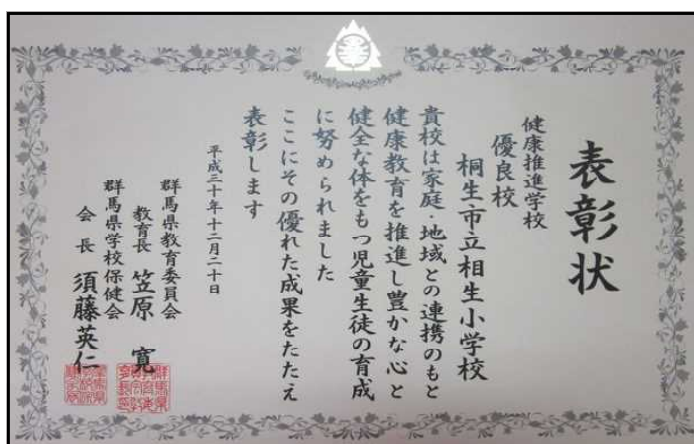 表彰状
健康推進学校
優良校
桐生市立相生小学校
貴校は家庭・地域との連携のもと
健康教育を推進し豊かな心と
健全な体をもつ児童生徒の育成
に努められました
ここにその優れた成果をたたえ
表彰します
平成三十年十二月二十日
群馬県教育委員会
教育長 笠原 寛
群馬県学校保健会
会長 須藤英仁